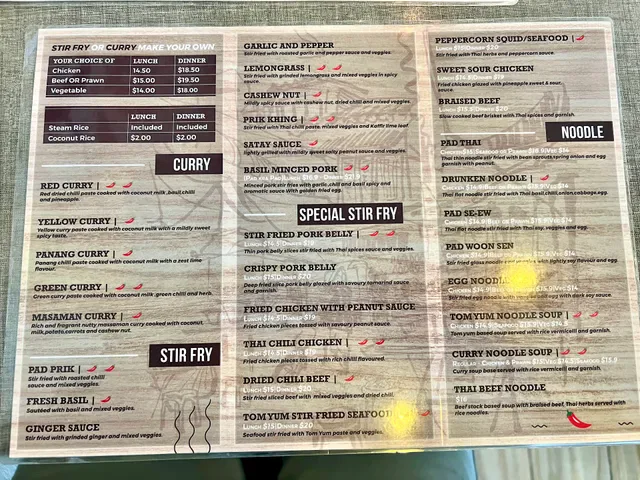 STIR FRY OR CURRY MAKE YOUR OWN
YOUR CHOICE OF LUNCH DINNER
Chicken 14.50 $18.50
Beef OR Prawn $15.00 $19.50
Vegetable $14.00 $18.00
LUNCH DINNER
Steam Rice Included Included
Coconut Rice $2.00 $2.00
CURRY
RED CURRY |
Red dried chilli paste cooked with coconut milk, basil, chilli
and pineapple.
YELLOW CURRY |
Yellow curry paste cooked with coconut milk with a mildly sweet
spicy taste.
PANANG CURRY |
Panang chilli paste cooked with coconut milk with a zest lime
flavour.
GREEN CURRY |
Green curry paste cooked with coconut milk, green chilli and herb.
MASAMAN CURRY |
Rich and fragrant nutty massaman curry cooked with coconut
milk, potato, carrots and cashew nut.
STIR FRY
PAD PRIK |
Stir fried with roasted chilli
sauce and mixed veggies.
FRESH BASIL |
Sautéed with basil and mixed veggies.
GINGER SAUCE
Stir fried with grinded ginger and mixed veggies.
GARLIC AND PEPPER
Stir fried with roasted garlic and pepper sauce and veggies.
LEMONGRASS |
Stir fried with grinded lemongrass and mixed veggies in spicy
sauce.
CASHEW NUT |
Mildly spicy sauce with cashew nut, dried chilli and mixed veggies.
PRIK KHING |
Stir fried with Thai chilli paste, mixed veggies and Kaffir lime leaf.
SATAY SAUCE
lightly grilled with mildly sweet salty peanut sauce and veggies.
BASIL MINCED PORK
Minced pork stir fries with garlic, chili and basil spicy and
aromatic sauce With golden fried egg.
SPECIAL STIR FRY
STIR FRIED PORK BELLY |
LUNCH $14.5|DINNER $19
Thin pork belly slices stir fried with Thai spices sauce and veggies.
CRISPY PORK BELLY
LUNCH $15|DINNER $20
Deep fried sins pork belly glazed with savoury tamarind sauce
and garnish.
FRIED CHICKEN WITH PEANUT SAUCE
LUNCH $14.5|DINNER $19
Fried chicken pieces tossed with savoury peanut sauce.
THAI CHILI CHICKEN |
LUNCH $14.5|DINNER $19
Fried chicken pieces tossed with rich chilli flavoured.
DRIED CHILI BEEF |
LUNCH $15|DINNER $20
Stir fried sliced beef with mixed veggies and dried chili.
TOM YUM STIR FRIED SEAFOOD
LUNCH $15|DINNER $20
Seafood stir fried with Tom Yum paste and veggies.
PEPPERCORN SQUID/SEAFOOD |
LUNCH $15|DINNER $20
Stir fried with Thai herbs and peppercorn sauce.
SWEET SOUR CHICKEN
LUNCH $14.5|DINNER $19
Fried chicken glazed with pineapple sweet & sour
sauce.
BRAISED BEEF
LUNCH $15.5|DINNER $20
Slow cooked beef brisket with Thai spices and garnish.
NOODLE
PAD THAI
Thai thin noodle stir fried with bean sprouts, spring onion and egg
garnish with peanut.
DRUNKEN NOODLE |
Thai flat noodle stir fried with Thai basil, chilli, onion, cabbage, egg.
PAD SE-EW
Thai flat noodle stir fried with Thai soy, veggies and egg.
PAD WOON SEN
Stir fried glass noodle with lightly soy flavour and egg.
EGG NOODLE
Stir fried egg noodle with egg with dark soy sauce.
TOM YUM NOODLE SOUP |
Tom Yum based soup served with rice vermicelli and garnish.
CURRY NOODLE SOUP |
Curry soup base served with rice vermicelli and garnish.
THAI BEEF NOODLE
$16
Beef stock based soup with braised beef, Thai herbs served with
rice noodles.